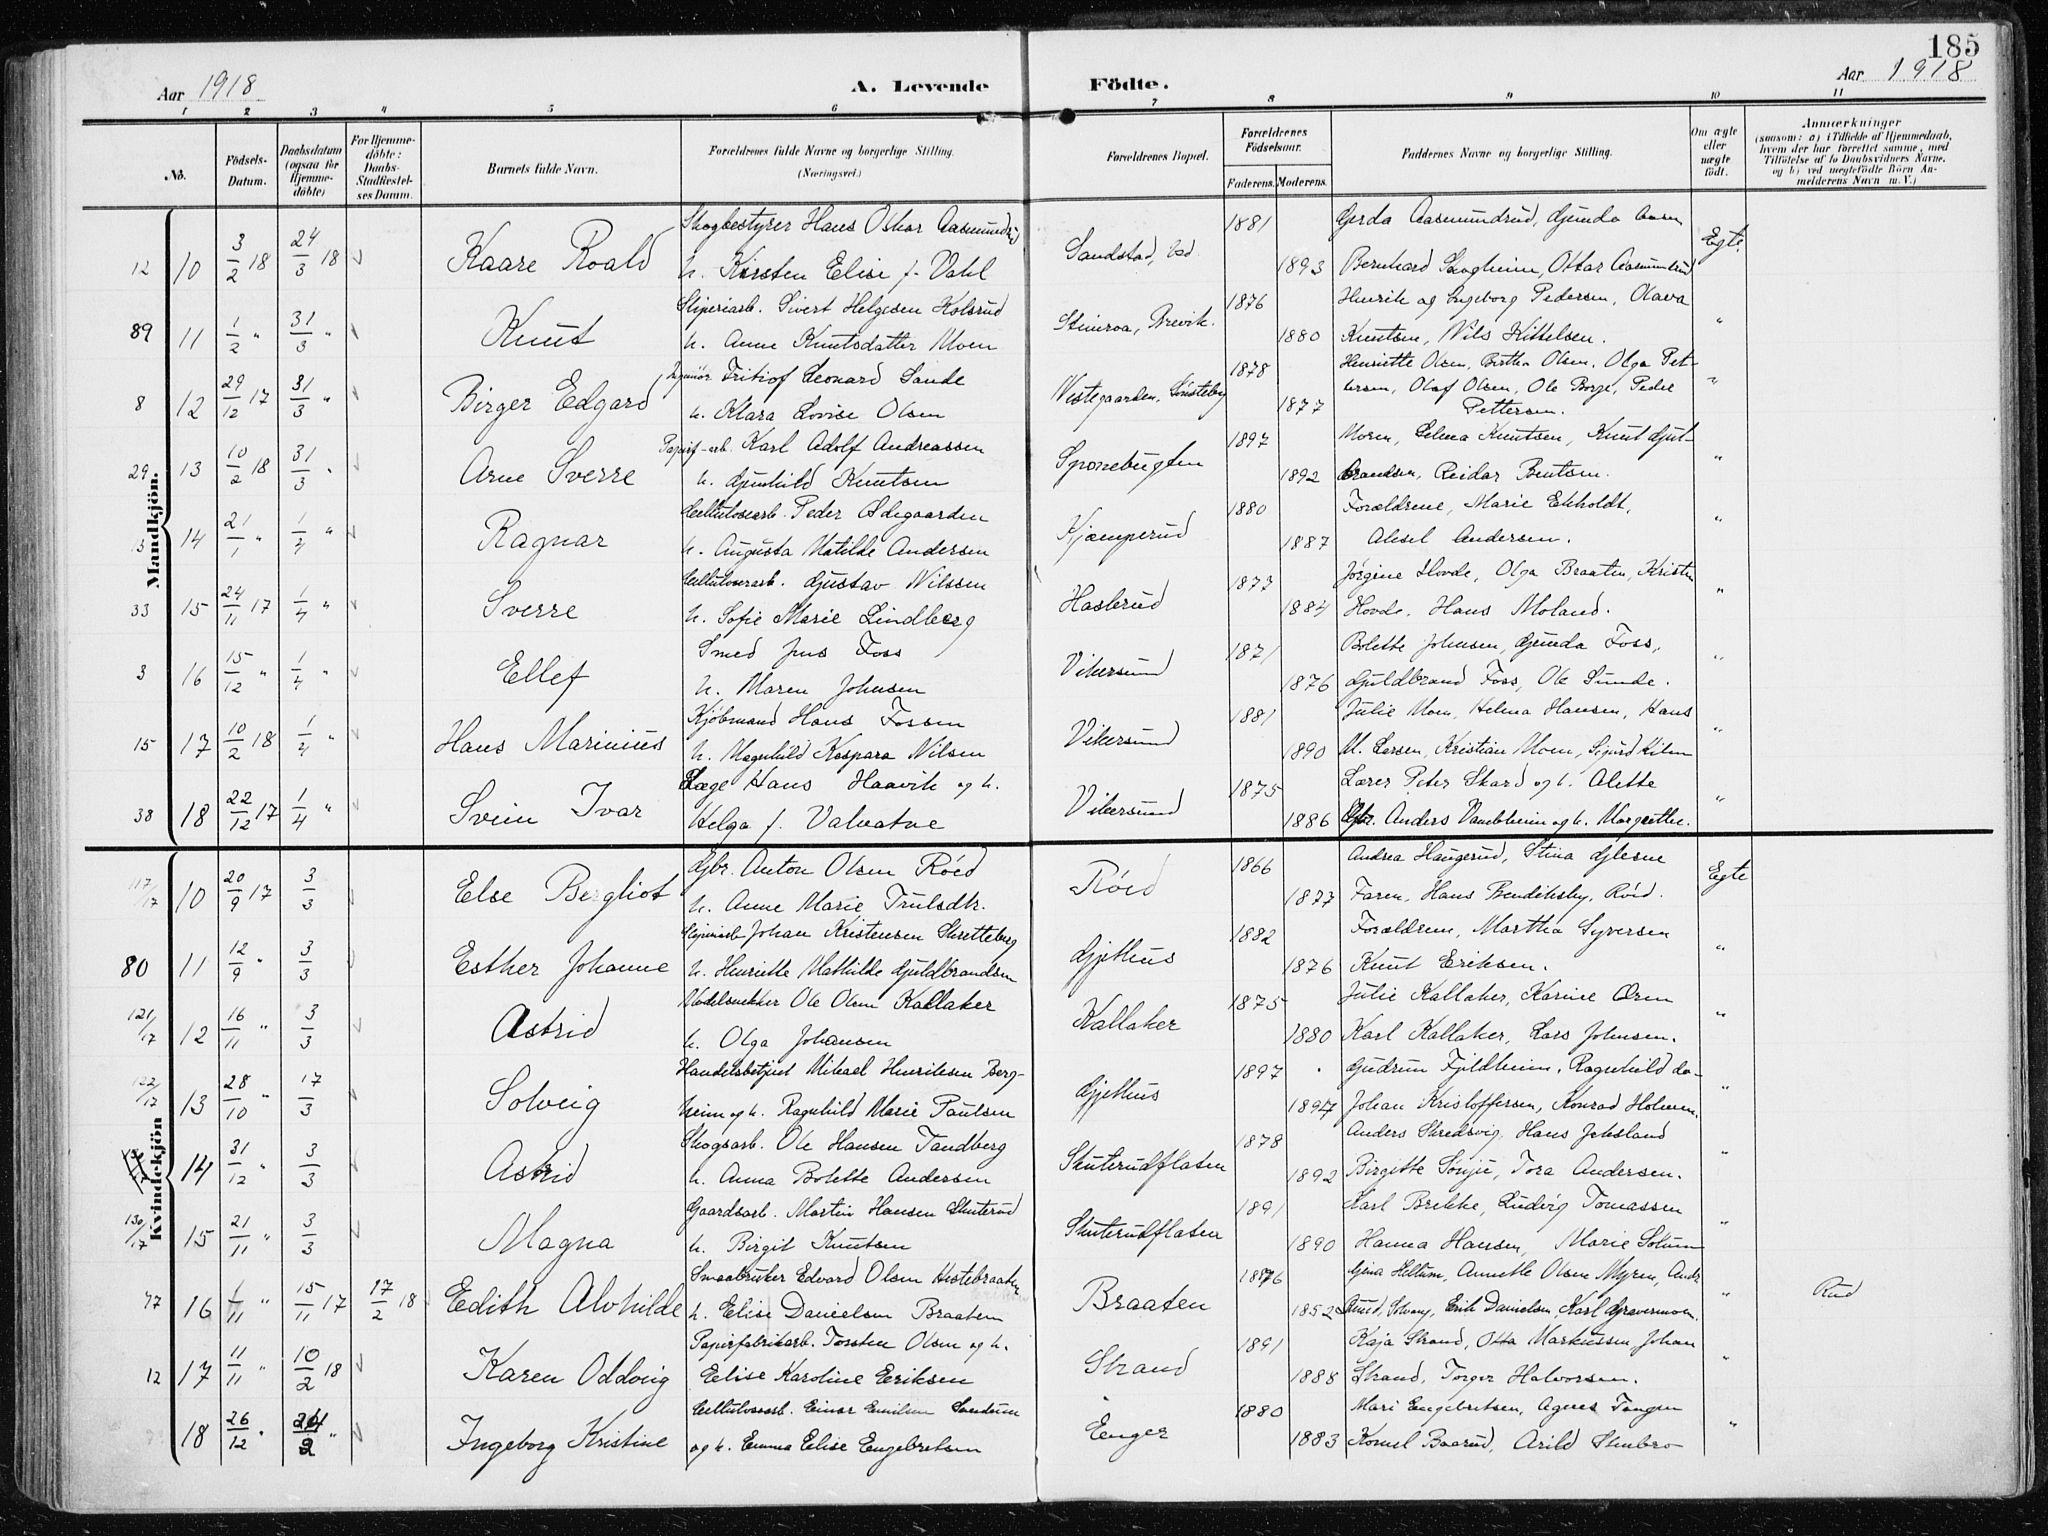 185
Aar 1918 A. Levende Födte. Aar 1918
1 2 3 4 5 6 7 8 9 10 11
No. Födsels-Datum. Daabsdatum (ogsaa for Hjemmedöbte) For Hjemmedöbte: Daabs-Stadfæstelses Datum. Barnets fulde Navn. Forældrenes fulde Navne og borgerlige Stilling. (Næringsvei.) Forældrenes Bopæl. Forældrenes Födselsaar. Faderens. Moderens. Faddernes Navne og borgerlige Stilling. Om ægte eller uægte födt. Anmærkninger (saasom: a) i Tilfælde af Hjemmedaab, hvem der har forrettet samme, med Tilföielse af to Daabsvidners Navne, og b) ved uegtefödte Börn Anmelderens Navn m.V.)
Mandkjön.
Skogbestyrer Hans Oskar Aasmundrud 1881 Gerda Aasmundrud, Gunda Aasen
12 10 3/2 18 24/3 18 Kaare Roald h. Kirsten Elise f. Vahl Sandstad, 1893 Bernhard Skogheim, Ottar Aasmundrud Egte
Sliperiarb. Sivert Helgesen Kolsrud 1876 Henrik og Ingeborg Pedersen, Olava
89 11 1/2 " 31/3 " Knut h. Anne Knutsdatter Moen Stenroa, Brevik. 1880 Knutsen, Nils Kittelsen. "
Ingeniör Fritiof Leonard Sande 1878 Henriette Olsen, Birtha Olsen, Olga Pet-
8 12 29/12 17 31/3 " Birger Edgard h. Klara Lovise Olsen Vestegaarden, Sönsteby 1877 tersen, Olaf Olsen, Ole Borge, Peder "
Pettersen.
Papirf-arb. Karl Adolf Andreassen 1897 Moren, Selma Knutsen, Knut Gul-
29 13 10/2 18 31/3 " Arne Sverre h. Gunhild Knutsen Sponebugten 1892 brandsen, Reidar Bentsen. "
Cellulosearb. Peder Ødegaarden 1880 Forældrene, Marie Ekholdt,
13 14 21/1 " 1/4 " Ragnar h. Augusta Matilde Andersen Kjæmperud 1887 Aksel Andersen. "
Cellulosearb. Gustav Nilssen 1873 Jörgine Hovde, Olga Braaten, Kristen
33 15 24/11 17 1/4 " Sverre h. Sofie Marie Lindberg Haslerud 1884 Hovde, Hans Moland. "
Smed Jens Foss 1871 Bolette Johnsen, Gunda Foss,
3 16 15/12 " 1/4 " Ellef h. Maren Johnsen Vikersund 1876 Guldbrand Foss, Ole Sunde. "
Kjöbmand Hans Fossen 1881 Julie Moen, Helma Hansen, Hans
15 17 10/2 18 1/4 " Hans Marinius h. Magnhild Kaspara Nilsen Vikersund 1890 M. Larsen, Kristian Moen, Sigurd Kilen "
Læge Hans Haavik og h. 1875 Lærer Peter Skard og h. Alette
38 18 22/12 17 1/4 " Svein Ivar Helga f. Valvatne Vikersund 1886 Gbr. Anders Vambheim og h. Margrethe. "
Kvindekjön
Gbr. Anton Olsen Röed 1866 Andrea Haugerud, Stina Glesne
117/17 10 20/9 17 3/3 Else Bergliot h. Anne Marie Trulsdtr. Röed 1877 Faren, Hans Bendiksby, Röid. Egte
Sliperiarb Johan Kristensen Skretteberg 1882 Forældrene, Martha Syversen
80 11 12/9 " 3/3 Esther Johanne h. Henriette Mathilde Guldbrandsen Gjethus 1876 Knut Eriksen. "
Modelsnekker Ole Olsen Kallaker 1875 Julie Kallaker, Karine Ören
121/17 12 16/11 " 3/3 Astrid h. Olga Johansen Kallaker 1880 Karl Kallaker, Lars Johnsen. "
Handelsbetjent Mikael Henriksen Berg- 1897 Gudrun Fjeldheim, Ragnhild do-
122/17 13 28/10 " 17/3 Solveig heim og h. Ragnhild Marie Paulsen Gjethus 1897 Johan Kristoffersen, Konrad Holmen. "
Skogsarb. Ole Hansen Tandberg 1878 Anders Skredsvig, Hans Joksland
14 31/12 " 3/3 Astrid h. Anna Bolette Andersen Skuterudflaten 1892 Birgitte Sönju, Tora Andersen. "
Gaardsarb. Martin Hansen Skuterud 1891 Karl Brekke, Ludvig Tomassen
130/17 15 21/11 " 3/3 Magna h. Birgit Knutsen Skuterudflaten 1890 Hanna Hansen, Marie Solum "
Smaabruker Edvard Olsen Hestebraaten 1876 Gina Heltum, Annette Olsen Myren, Andr.
77 16 1/11 " 15/11 17 17/2 18 Edith Alvhilde h. Elise Danielsen Braaten Braaten 1852 Lund, Erik Danielsen, Karl Gravermoen " Rud
Papirfabrikarb. Torsten Olsen og h. 1891 Kaja Strand, Otto Markussen, Johan
12 17 11/11 " 10/2 18 Karen Oddveig Elise Karoline Eriksen Strand 1888 Strand, Torger Halvorsen. "
Cellulosearb. Einar Emilsen Sandum 1880 Mari Engebretsen, Agnes Tangen
18 26/12 " 24/2 " Ingeborg Kristine og h. Emma Elise Engebretsen Enger 1883 Konul Baarud, Arild Stubro "